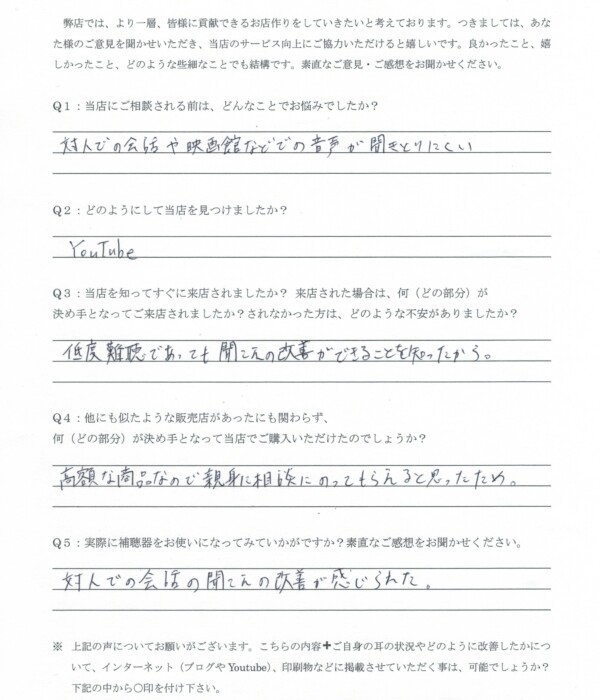 弊店では、より一層、皆様に貢献できるお店作りをしていきたいと考えております。つきましては、あな
た様のご意見を聞かせいただき、当店のサービス向上にご協力いただけると嬉しいです。良かったこと、嬉
しかったこと、どのような些細なことでも結構です。素直なご意見・ご感想をお聞かせください。
Q1：当店にご相談される前は、どんなことでお悩みでしたか？
対人での会話や映画館などでの音声が聞きとりにくい
Q2：どのようにして当店を見つけましたか？
YouTube
Q3：当店を知ってすぐに来店されましたか？ 来店された場合は、何（どの部分）が
決め手となってご来店されましたか？されなかった方は、どのような不安がありましたか？
低度難聴であっても聞こえの改善ができることを知ったから。
Q4：他にも似たような販売店があったにも関わらず、
何（どの部分）が決め手となって当店でご購入いただけたのでしょうか？
高額な商品なので親身に相談にのってもらえると思ったため。
Q5：実際に補聴器をお使いになってみていかがですか？素直なご感想をお聞かせください。
対人での会話の聞こえの改善が感じられた。
※ 上記の声についてお願いがございます。こちらの内容＋ご自身の耳の状況やどのように改善したかにつ
いて、インターネット（ブログや Youtube）、印刷物などに掲載させていただく事は、可能でしょうか？
下記の中から〇印を付け下さい。